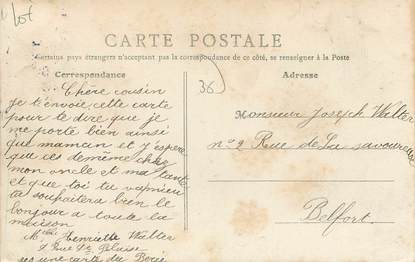 1 lot
CARTE POSTALE
Certains pays étrangers n'acceptant pas la correspondance de ce côté, se renseigner à la Poste
Correspondance
Adresse
36
Chère cousin
je t'envoie cette carte
pour te dire que je
me porte bien ainsi
que maman et j'espère
que ces de même chez
mon oncle et ma tante
et que toi tu
tu souhaitera bien le
bonjour a toute la
maison
Henriette Walter
Rue
une carte du
Monsieur Joseph Walter
n° 2 Rue de La savoureuse
Belfort.